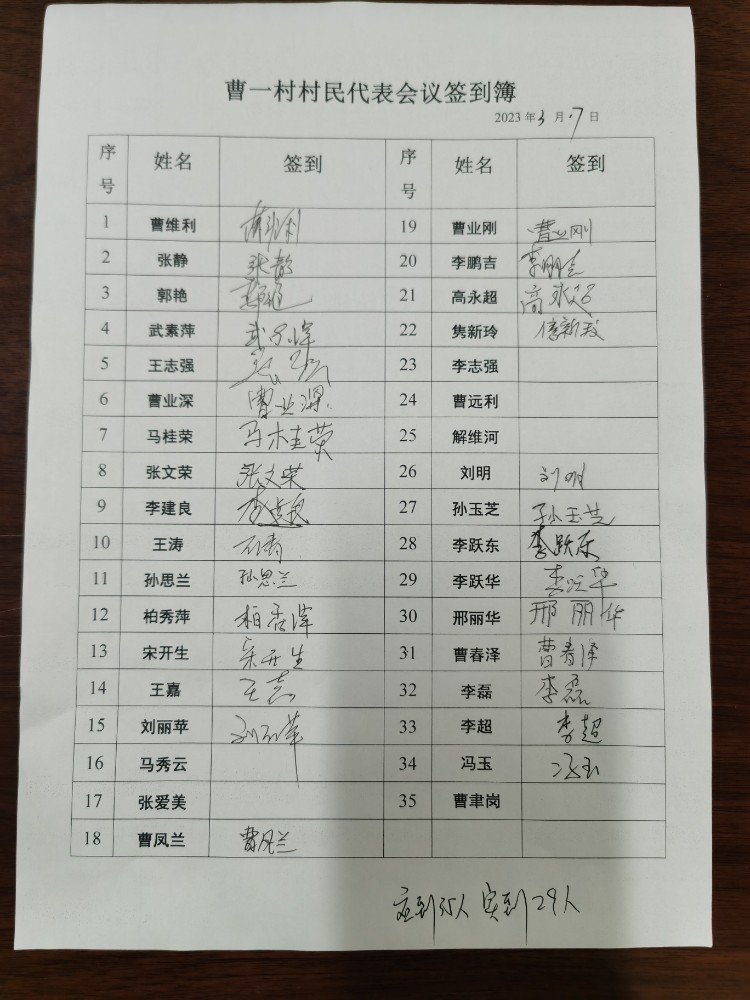 曹一村村民代表会议签到簿
2023年3月7日
序号 姓名 签到 序号 姓名 签到
1 曹维利 曹维利 19 曹业刚 曹业刚
2 张静 张静 20 李鹏吉 李鹏吉
3 郭艳 郭艳 21 高永超 高永超
4 武素萍 武素萍 22 隽新玲
5 王志强 23 李志强
6 曹业深 曹业深 24 曹远利
7 马桂荣 马桂荣 25 解维河
8 张文荣 张文荣 26 刘明 刘明
9 李建良 李建良 27 孙玉芝 孙玉芝
10 王涛 28 李跃东 李跃东
11 孙思兰 孙思兰 29 李跃华 李跃华
12 柏秀萍 柏秀萍 30 邢丽华 邢丽华
13 宋开生 宋开生 31 曹春泽 曹春泽
14 王嘉 王嘉 32 李磊 李磊
15 刘丽苹 刘丽苹 33 李超 李超
16 马秀云 34 冯玉 冯玉
17 张爱美 35 曹聿岗
18 曹凤兰 曹凤兰
应到35人 实到29人